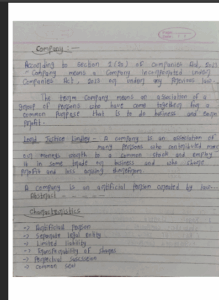 Company :-
According to Section 2(20) of Companies Act, 2013
"Company means a Company incorporated under
Companies Act, 2013 or under any previous law.
The term Company means an association of a
group of persons who have come together for a
common purpose that is to do business and earn
profit.
A company is an association of
many persons who contributed money
or money worth to a common stock and employ
it in some trade or business and who share
profit and loss arising therefrom.
A company is an artificial person created by law.
Characteristics
-> Artificial person
-> Separate legal Entity
-> Limited Liability
-> Transferability of shares
-> Perpetual Succession
-> Common Seal